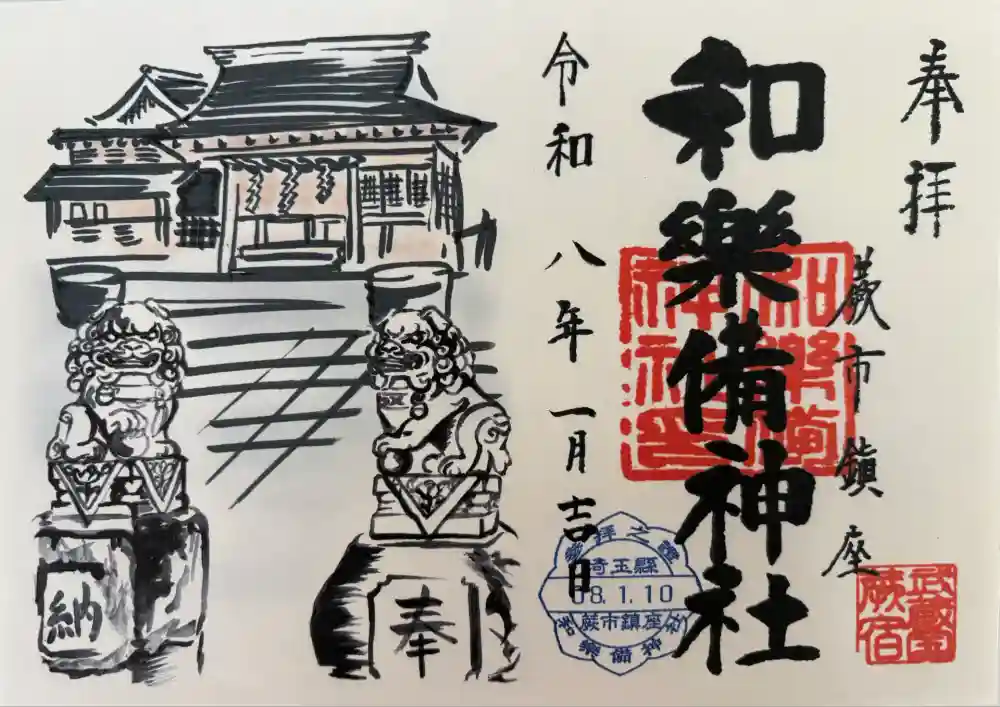 奉拝
蕨市鎮座
和樂備神社
和樂備
神社印
武蔵
蕨宿
令和八年一月吉日
参拝之証
埼玉縣
08.1.10
蕨市鎮座
和樂備神社
奉
納